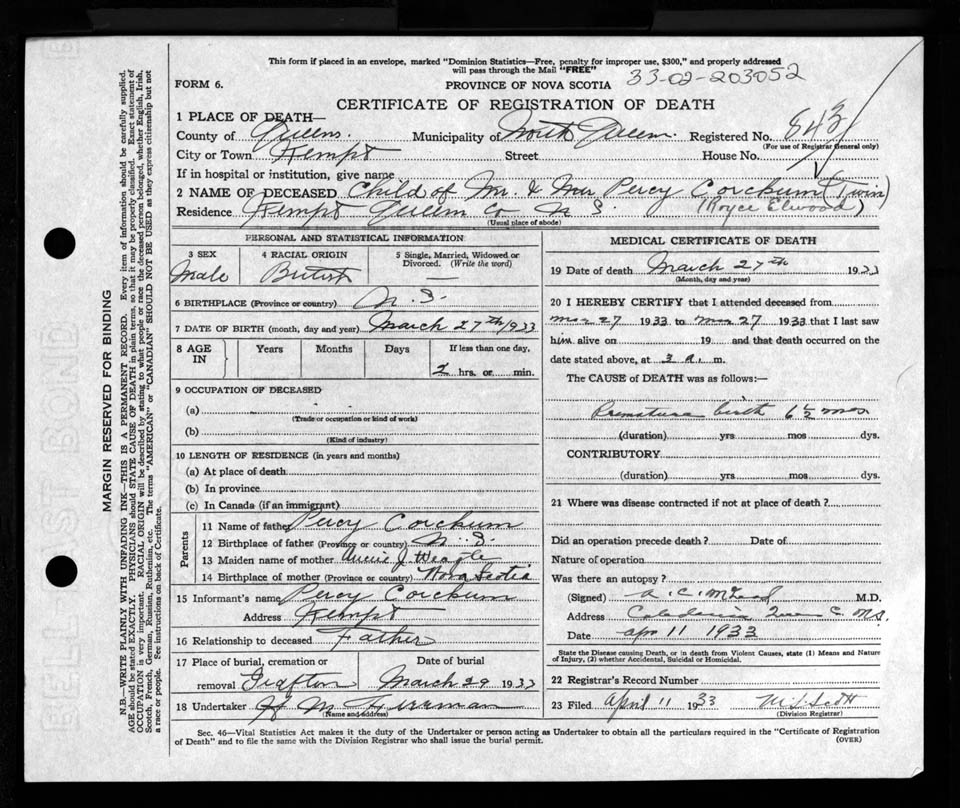 This form if placed in an envelope, marked "Dominion Statistics—Free, penalty for improper use, $300," and properly addressed
will pass through the Mail "FREE"
33-02-203052
FORM 6.
PROVINCE OF NOVA SCOTIA
CERTIFICATE OF REGISTRATION OF DEATH
1 PLACE OF DEATH—
County of Queens. Municipality of North Queens. Registered No. 843
(For use of Registrar General only)
City or Town Kempt Street House No.
If in hospital or institution, give name
2 NAME OF DECEASED Child of Mr. & Mrs Percy Corckum (Twin)
(Royce Elwood)
Residence Kempt Queens Co N S.
(Usual place of abode)
PERSONAL AND STATISTICAL INFORMATION
3 SEX 4 RACIAL ORIGIN 5 Single, Married, Widowed or
Divorced. (Write the word)
Male British
6 BIRTHPLACE (Province or country) N. S.
7 DATE OF BIRTH (month, day and year) March 27th 1933
8 AGE IN Years Months Days If less than one day,
2 hrs. or min.
9 OCCUPATION OF DECEASED
(a)
(Trade or occupation or kind of work)
(b)
(Kind of industry)
10 LENGTH OF RESIDENCE (in years and months)
(a) At place of death
(b) In province
(c) In Canada (if an immigrant)
Parents
11 Name of father Percy Corckum
12 Birthplace of father (Province or country) N. S.
13 Maiden name of mother J. Weagle
14 Birthplace of mother (Province or country) Nova Scotia
15 Informant's name Percy Corckum
Address Kempt
16 Relationship to deceased Father
17 Place of burial, cremation or Date of burial
removal Grafton March 29 1933
18 Undertaker M
(Name and address)
MEDICAL CERTIFICATE OF DEATH
19 Date of death March 27th 1933
(Month, day and year)
20 I HEREBY CERTIFY that I attended deceased from
Mar 27 1933 to Mar 27 1933 that I last saw
him alive on 19 and that death occurred on the
date stated above, at 3 a. m.
The CAUSE of DEATH was as follows:—
Premature birth 6½ mos
(duration) yrs mos dys.
CONTRIBUTORY
(duration) yrs mos dys.
21 Where was disease contracted if not at place of death?
Did an operation precede death? Date of
Nature of operation
Was there an autopsy?
(Signed) M.D.
Address Caledonia Queens C. N.S.
Date Apr 11 1933
State the Disease causing Death, or in death from Violent Causes, state (1) Means and Nature
of Injury, (2) whether Accidental, Suicidal or Homicidal.
22 Registrar's Record Number
23 Filed April 11 1933 Scott
(Division Registrar)
Sec. 46—Vital Statistics Act makes it the duty of the Undertaker or person acting as Undertaker to obtain all the particulars required in the "Certificate of Registration
of Death" and to file the same with the Division Registrar who shall issue the burial permit.
(OVER)
MARGIN RESERVED FOR BINDING
N.B.—WRITE PLAINLY WITH UNFADING INK—THIS IS A PERMANENT RECORD. Every item of information should be carefully supplied.
AGE should be stated EXACTLY. PHYSICIANS should STATE CAUSE OF DEATH in plain terms, so that it may be properly classified. Exact statement of
OCCUPATION is very important. RACIAL ORIGIN will be described by stating to what people or race the deceased person belonged, whether English, Irish,
Scotch, French, German, Russian, Ruthenian, etc. The terms "AMERICAN" or "CANADIAN" SHOULD NOT BE USED as they express citizenship but not
a race or people. See instructions on back of Certificate.